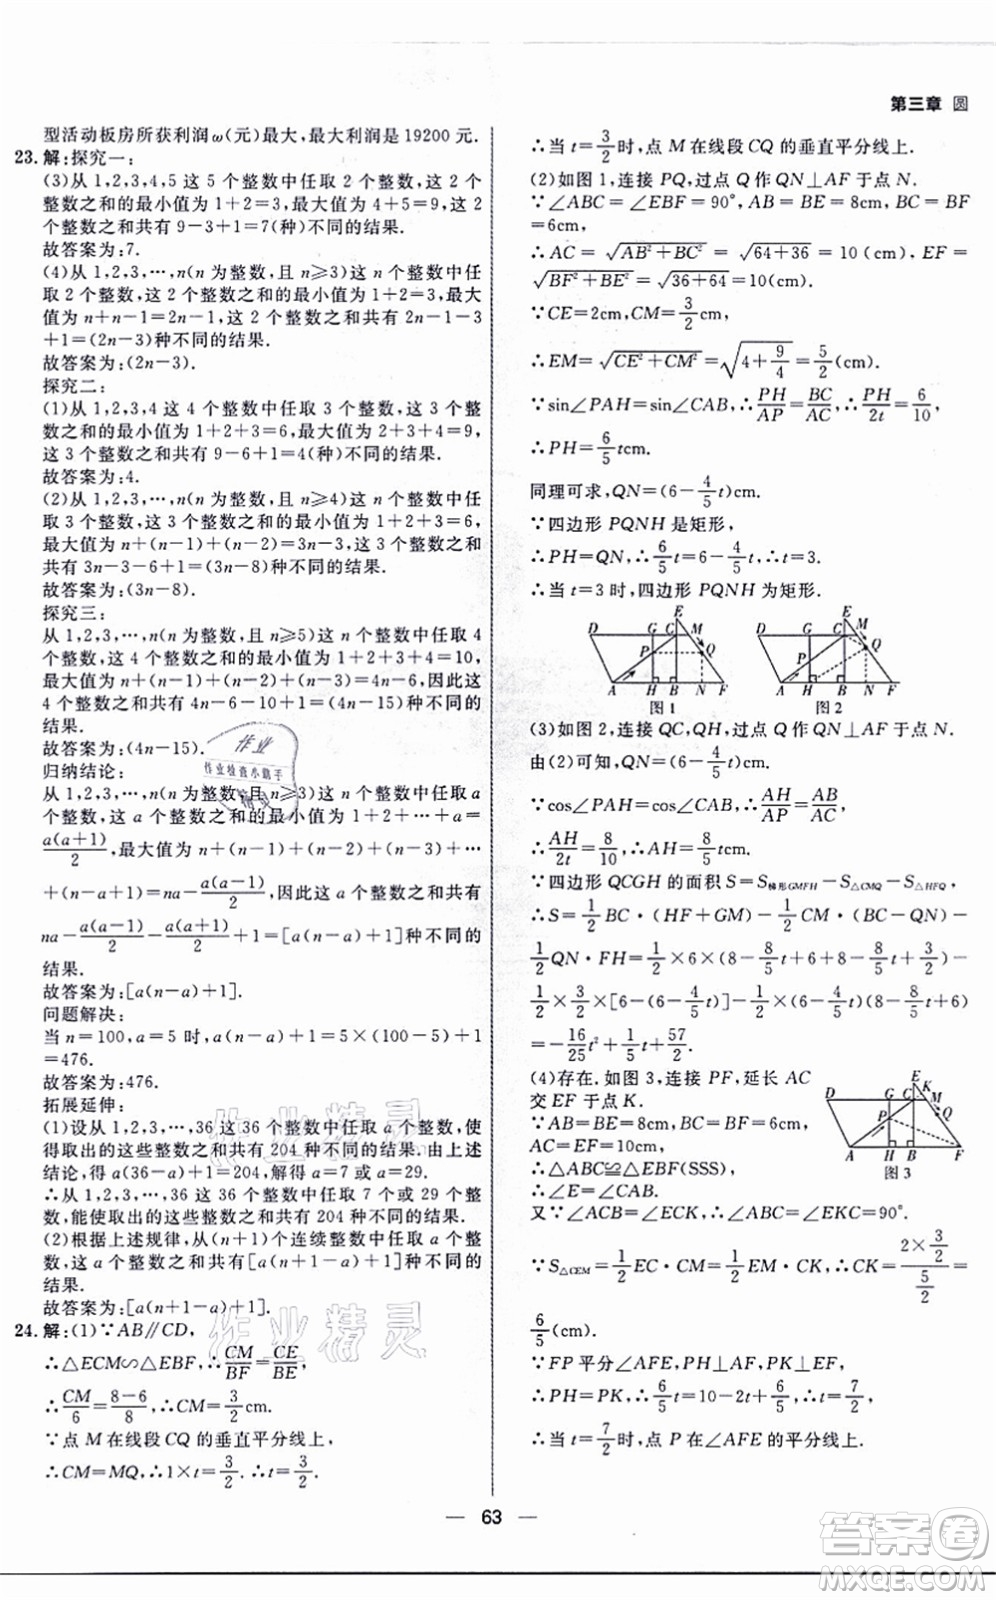 第三章 圆
型活动板房所获利润ω(元)最大,最大利润是19200元.
23. 解:探究一:
(3)从1,2,3,4,5这5个整数中任取2个整数,这2个
整数之和的最小值为1+2=3,最大值为4+5=9,这2
个整数之和共有9-3+1=7(种)不同的结果.
故答案为:7.
(4)从1,2,3,⋯,n(n为整数,且n⩾3)这n个整数中任
取2个整数,这2个整数之和的最小值为1+2=3,最大
值为n+n-1=2n-1,这2个整数之和共有2n-1-3
+1=(2n-3)种不同的结果.
故答案为:(2n-3).
探究二:
(1)从1,2,3,4这4个整数中任取3个整数,这3个整
数之和的最小值为1+2+3=6,最大值为2+3+4=9,
这3个整数之和共有9-6+1=4(种)不同的结果.
故答案为:4.
(2)从1,2,3,⋯,n(n为整数,且n⩾4)这n个整数中任
取3个整数,这3个整数之和的最小值为1+2+3=6,
最大值为n+(n-1)+(n-2)=3n-3,这3个整数之和
共有3n-3-6+1=(3n-8)种不同的结果.
故答案为:(3n-8).
探究三:
从1,2,3,⋯,n(n为整数,且n⩾5)这n个整数中任取4
个整数,这4个整数之和的最小值为1+2+3+4=10,
最大值为n+(n-1)+(n-2)+(n-3)=4n-6,因此这
4个整数之和共有4n-6-10+1=(4n-15)种不同的
结果.
故答案为:(4n-15).
归纳结论:
从1,2,3,⋯,n(n为整数,且n⩾3)这n个整数中任取a
个整数,这a个整数之和的最小值为1+2+⋯+a=
a(a+1)/2,最大值为n+(n-1)+(n-2)+(n-3)+⋯
+(n-a+1)=na-a(a-1)/2,因此这a个整数之和共有
na-a(a-1)/2-a(a+1)/2+1=[a(n-a)+1]种不同的
结果.
故答案为:[a(n-a)+1].
问题解决:
当n=100,a=5时,a(n-a)+1=5×(100-5)+1
=476.
故答案为:476.
拓展延伸:
(1)设从1,2,3,⋯,36这36个整数中任取a个整数,使
得取出的这些整数之和共有204种不同的结果.由上述
结论,得a(36-a)+1=204,解得a=7或a=29.
∴从1,2,3,⋯,36这36个整数中任取7个或29个整
数,能使取出的这些整数之和共有204种不同的结果.
(2)根据上述规律,从(n+1)个连续整数中任取a个整
数,这a个整数之和共有[a(n+1-a)+1]种不同的
结果.
故答案为:[a(n+1-a)+1].
24. 解:(1)∵AB∥CD,
∴△ECM∽△EBF,∴CM/BF=CE/BE,
∴CM/6=(8-6)/8,∴CM=3/2cm.
∵点M在线段CQ的垂直平分线上,
∴CM=MQ,∴1×t=3/2.∴t=3/2.
∴当t=3/2时,点M在线段CQ的垂直平分线上.
(2)如图1,连接PQ,过点Q作QN⊥AF于点N.
∵∠ABC=∠EBF=90°,AB=BE=8cm,BC=BF
=6cm,
∴AC=√(AB²+BC²)=√(64+36)=10(cm),EF=
√(BF²+BE²)=√(36+64)=10(cm).
∵CE=2cm,CM=3/2cm,
∴EM=√(CE²+CM²)=√(4+9/4)=5/2(cm).
∵sin∠PAH=sin∠CAB,∴PH/AP=BC/AC,∴PH/2t=6/10,
∴PH=6/5tcm.
同理可求,QN=(6-4/5t)cm.
∵四边形PQNH是矩形,
∴PH=QN,∴6/5t=6-4/5t,∴t=3.
∴当t=3时,四边形PQNH为矩形.
D G C E M P Q A H B N F
图1
D G C E M P Q A H B N F
图2
(3)如图2,连接QC,QH,过点Q作QN⊥AF于点N.
由(2)可知,QN=(6-4/5t)cm.
∵cos∠PAH=cos∠CAB,∴AH/AP=AB/AC,
∴AH/2t=8/10,∴AH=8/5tcm.
∵四边形QCGH的面积S=S梯形GMFH-S△CMQ-S△HFQ,
∴S=1/2BC·(HF+GM)-1/2CM·(BC-QN)-
1/2QN·FH=1/2×6×(8-8/5t+6+8-8/5t+3/2)-
1/2×3/2×[6-(6-4/5t)]-1/2(6-4/5t)(8-8/5t+6)
=-16/25t²+1/5t+57/2.
(4)存在.如图3,连接PF,延长AC
交EF于点K.
∵AB=BE=8cm,BC=BF=6cm,
AC=EF=10cm,
∴△ABC≌△EBF(SSS),
∴∠E=∠CAB.
又∵∠ACB=∠ECK,∴∠ABC=∠EKC=90°.
D G C E K M P Q A H B F
图3
∵S△CEM=1/2EC·CM=1/2EM·CK,∴CK=(2×3/2)/(5/2)=
6/5(cm).
∵FP平分∠AFE,PH⊥AF,PK⊥EF,
∴PH=PK,∴6/5t=10-2t+6/5,∴t=7/2,
∴当t=7/2时,点P在∠AFE的平分线上.
— 63 —
作业
作业检查小助手
精灵
作业精灵
作业精灵
答案卷
MXQE.COM